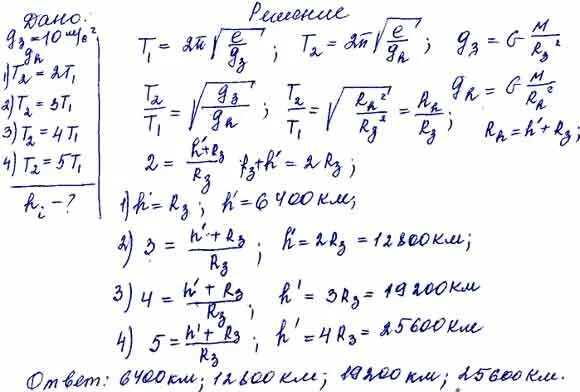 Дано:
g₃ = 10 м/с²
gh
1) T₂ = 2T₁
2) T₂ = 3T₁
3) T₂ = 4T₁
4) T₂ = 5T₁
hᵢ - ?
Решение
T₁ = 2π√(e/g₃) ; T₂ = 2π√(e/gh) ; g₃ = G M/R₃²
T₂/T₁ = √(g₃/gh) ; T₂/T₁ = √(Rh²/R₃²) = Rh/R₃ ; gh = G M/Rh²
Rh = h' + R₃ ;
2 = (h'+R₃)/R₃ R₃+h' = 2R₃ ;
1) h' = R₃ ; h' = 6400 км;
2) 3 = (h'+R₃)/R₃ ; h' = 2R₃ = 12800 км;
3) 4 = (h'+R₃)/R₃ ; h' = 3R₃ = 19200 км
4) 5 = (h'+R₃)/R₃ ; h' = 4R₃ = 25600 км
Ответ: 6400 км; 12800 км; 19200 км; 25600 км.